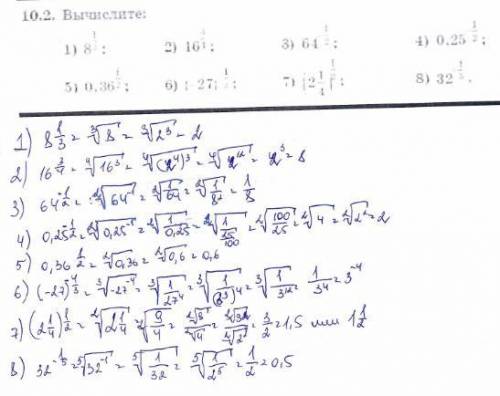 10.2. Вычислите:
1) 8^{1/3}; 2) 16^{3/4}; 3) 64^{-1/2}; 4) 0,25^{-1/2};
5) 0,36^{1/2}; 6) (-27)^{}; 7) (2 1/4)^{1/2}; 8) 32^{-1/5}.
1) 8^{1/3} = ∛8 = ∛2³ = 2
2) 16^{3/4} = ⁴√16³ = ⁴√(2⁴)³ = ⁴√2¹² = 2³ = 8
3) 64^{-1/2} = ²√64⁻¹ = ²√(1/64) = ²√(1/8²) = 1/8
4) 0,25^{-1/2} = ²√0,25⁻¹ = ²√(1/0,25) = ²√(1/(25/100)) = ²√(100/25) = ²√4 = ²√2² = 2
5) 0,36^{1/2} = ²√0,36 = ²√0,6 = 0,6
6) (-27)^{-4/3} = ∛-27⁻⁴ = ∛(1/27⁴) = ∛(1/(3³)⁴) = ∛(1/3¹²) = 1/3⁴ = 3⁻⁴
7) (2 1/4)^{1/2} = ²√(2 1/4) = ²√(9/4) = ²√9/²√4 = ²√3²/²√2² = 3/2 = 1,5 или 1 1/2
8) 32^{-1/5} = ⁵√32⁻¹ = ⁵√(1/32) = ⁵√(1/2⁵) = 1/2 = 0,5